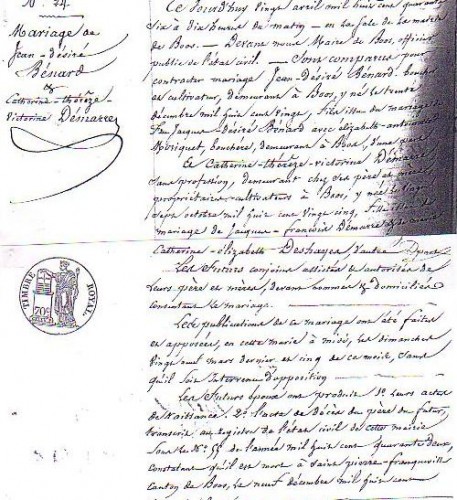 N°. 24
Mariage de
Jean-Désiré
Bénard
&
Catherine-thérèze-
Victorine Démarre
Ce Jourd'huy vingt avril mil huit cent quarante
Six à dix heures du matin, en la Salle de la mairie
de Boos. — Devant nous Maire de Boos, officier
public de l'état civil. — Sont comparus pour
contracter mariage, Jean-Désiré Bénard, boucher
et cultivateur, demeurant à Boos, y né le trente
décembre mil huit cent vingt, fils issu du mariage de
feu Jacques Désiré Bénard avec élizabeth
bouchère, demeurant à Boos, d'une part
Et Catherine-thérèze-victorine Démarre
Sans profession, demeurant chez Ses père et mère
propriétaires-cultivateurs à Boos, y née le vingt
Sept octobre mil huit cent vingt cinq, fille issue du
mariage de Jacques-françois Démarre
Catherine-élizabeth Deshayes, d'autre part
Les futurs conjoints assistés et autorisés de
Leurs père et mères, devant nommés & domiciliés
consentant le mariage.
Les publications de ce mariage ont été faites
et apposées, en cette mairie à midi, les dimanches
vingt neuf mars dernier et cinq de ce mois, Sans
qu'il soit Intervenu d'opposition
Les futurs époux ont produit 1° Leurs actes
de Naissance 2° l'acte de Décès du père du futur,
transcrit au registre de l'état civil de cette mairie
Sous le N° 55 de l'année mil huit cent quarante deux,
Constatant qu'il est mort à Saint-pierre-franqueville
Canton de Boos, le neuf décembre mil huit cent
TIMBRE ROYAL
70c